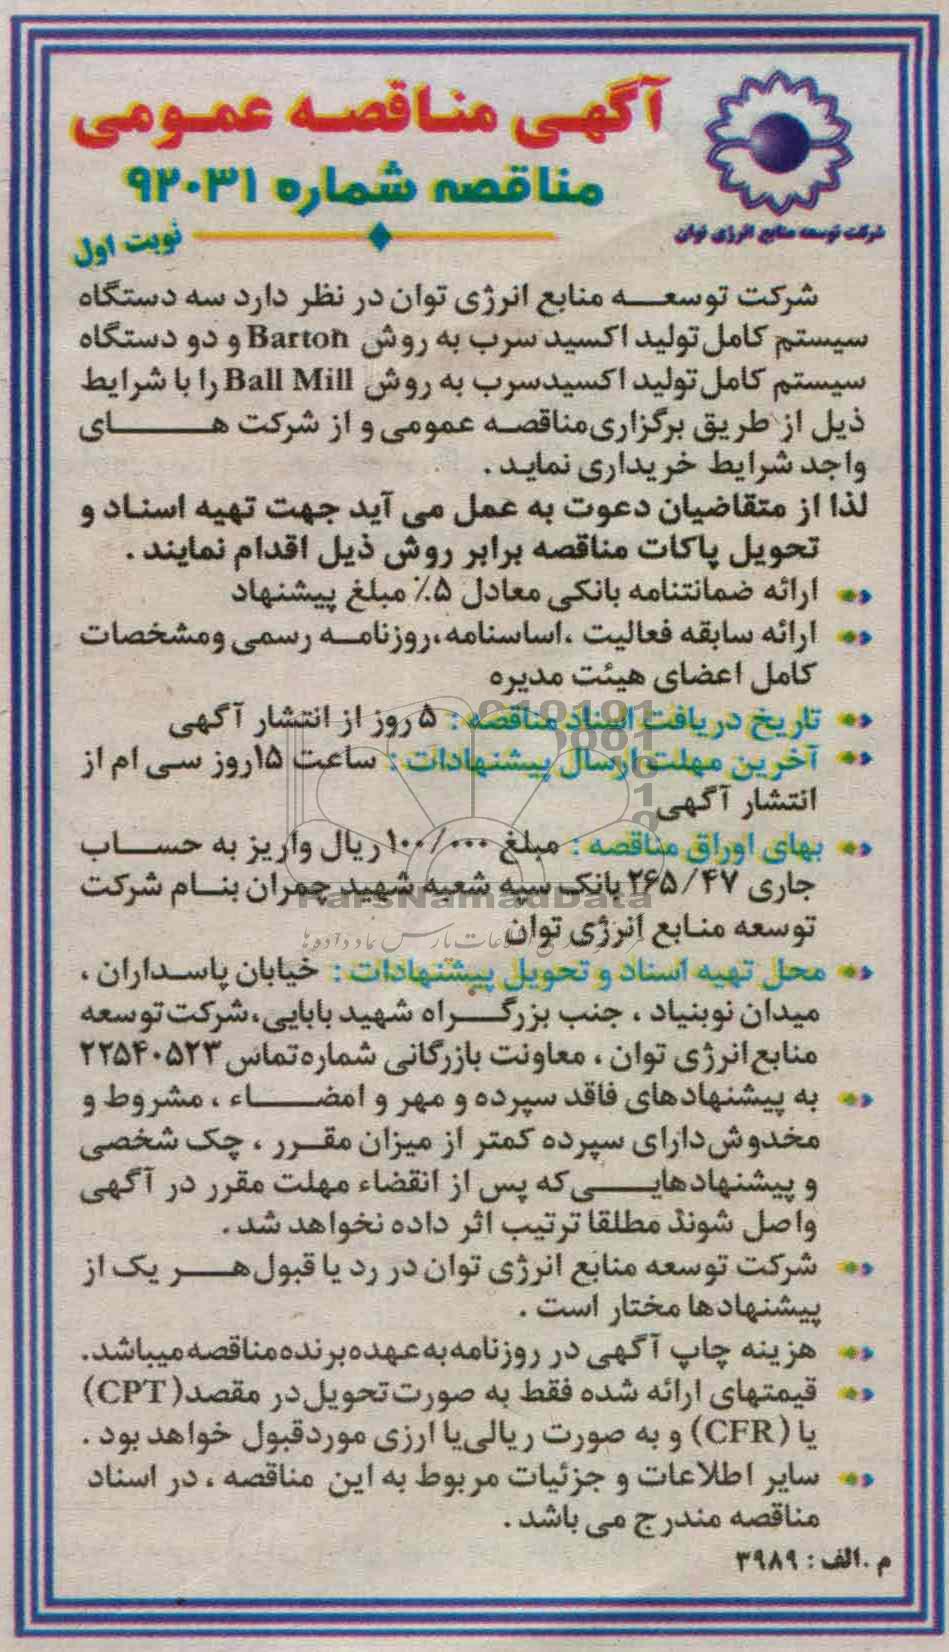 آگهی مناقصه عمومی
مناقصه شماره ۹۲۰۳۱
نوبت اول
شرکت توسعه منابع انرژی توان
شرکت توسعه منابع انرژی توان در نظر دارد سه دستگاه
سیستم کامل تولید اکسید سرب به روش Barton و دو دستگاه
سیستم کامل تولید اکسیدسرب به روش Ball Mill را با شرایط
ذیل از طریق برگزاری مناقصه عمومی و از شرکت های
واجد شرایط خریداری نماید .
لذا از متقاضیان دعوت به عمل می آید جهت تهیه اسناد و
تحویل پاکات مناقصه برابر روش ذیل اقدام نمایند .
ارائه ضمانتنامه بانکی معادل ۵٪ مبلغ پیشنهاد
ارائه سابقه فعالیت ،اساسنامه،روزنامه رسمی ومشخصات
کامل اعضای هیئت مدیره
تاریخ دریافت اسناد مناقصه : ۵ روز از انتشار آگهی
آخرین مهلت ارسال پیشنهادات : ساعت ۱۵روز سی ام از
انتشار آگهی
بهای اوراق مناقصه : مبلغ ۱۰۰/۰۰۰ ریال واریز به حساب
جاری ۲۶۵/۴۷ بانک سپه شعبه شهید چمران بنام شرکت
توسعه منابع انرژی توان
محل تهیه اسناد و تحویل پیشنهادات : خیابان پاسداران ،
میدان نوبنیاد ، جنب بزرگراه شهید بابایی،شرکت توسعه
منابع انرژی توان ، معاونت بازرگانی شماره تماس ۲۲۵۴۰۵۲۳
به پیشنهادهای فاقد سپرده و مهر و امضاء ، مشروط و
مخدوش دارای سپرده کمتر از میزان مقرر ، چک شخصی
و پیشنهادهایی که پس از انقضاء مهلت مقرر در آگهی
واصل شوند مطلقا ترتیب اثر داده نخواهد شد .
شرکت توسعه منابع انرژی توان در رد یا قبول هر یک از
پیشنهادها مختار است .
هزینه چاپ آگهی در روزنامه به عهده برنده مناقصه میباشد.
قیمتهای ارائه شده فقط به صورت تحویل در مقصد (CPT)
یا (CFR) و به صورت ریالی یا ارزی مورد قبول خواهد بود .
سایر اطلاعات و جزئیات مربوط به این مناقصه ، در اسناد
مناقصه مندرج می باشد .
م .الف : ۳۹۸۹
ParsNamadData